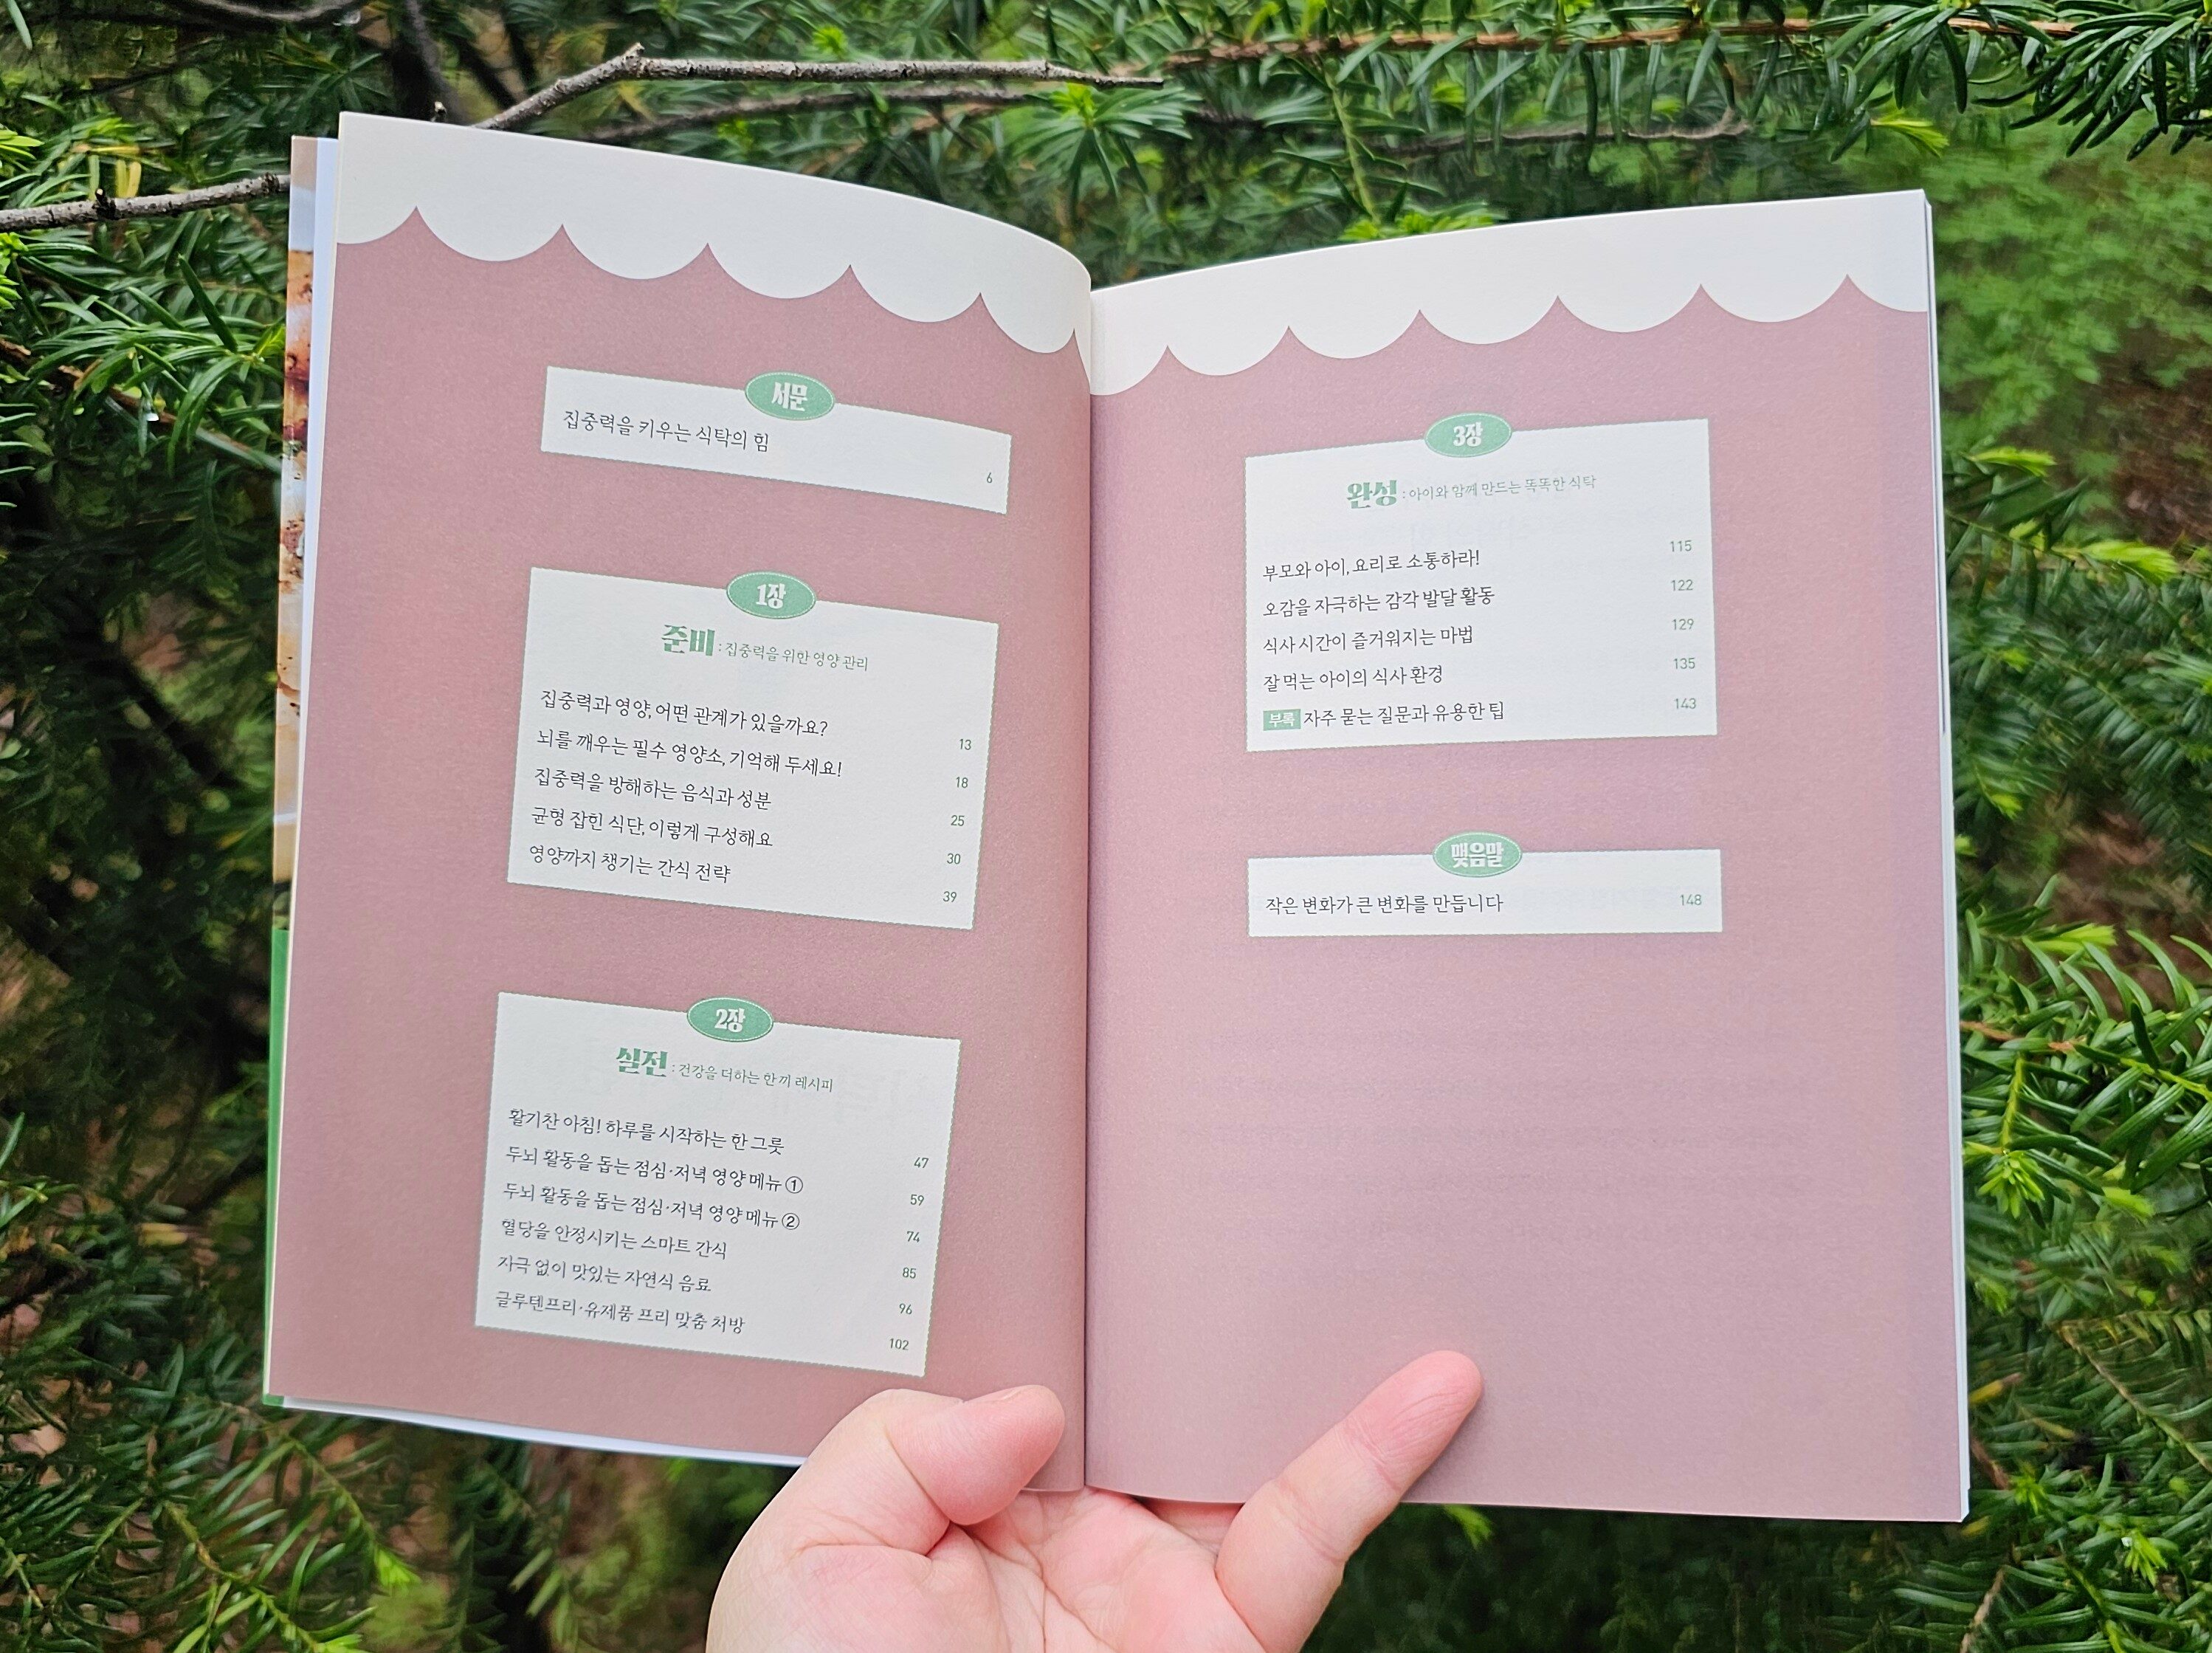 서문
집중력을 키우는 식탁의 힘 6
1장
준비 : 집중력을 위한 영양 관리
집중력과 영양, 어떤 관계가 있을까요? 13
뇌를 깨우는 필수 영양소, 기억해 두세요! 18
집중력을 방해하는 음식과 성분 25
균형 잡힌 식단, 이렇게 구성해요 30
영양까지 챙기는 간식 전략 39
2장
실전 : 건강을 더하는 한 끼 레시피
활기찬 아침! 하루를 시작하는 한 그릇 47
두뇌 활동을 돕는 점심·저녁 영양 메뉴 ① 59
두뇌 활동을 돕는 점심·저녁 영양 메뉴 ② 74
혈당을 안정시키는 스마트 간식 85
자극 없이 맛있는 자연식 음료 96
글루텐프리·유제품 프리 맞춤 처방 102
3장
완성 : 아이와 함께 만드는 똑똑한 식탁
부모와 아이, 요리로 소통하라! 115
오감을 자극하는 감각 발달 활동 122
식사 시간이 즐거워지는 마법 129
잘 먹는 아이의 식사 환경 135
부록 자주 묻는 질문과 유용한 팁 143
맺음말
작은 변화가 큰 변화를 만듭니다 148